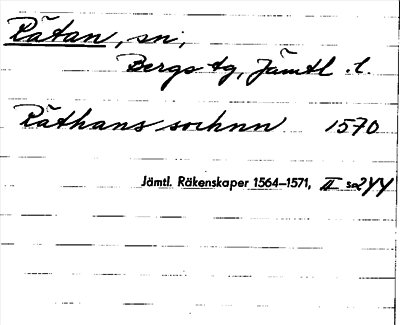 Rätan, sn,
Bergs tg, Jämtl. l.
Räthans sochnn 1570
Jämtl. Räkenskaper 1564–1571, II s. 244